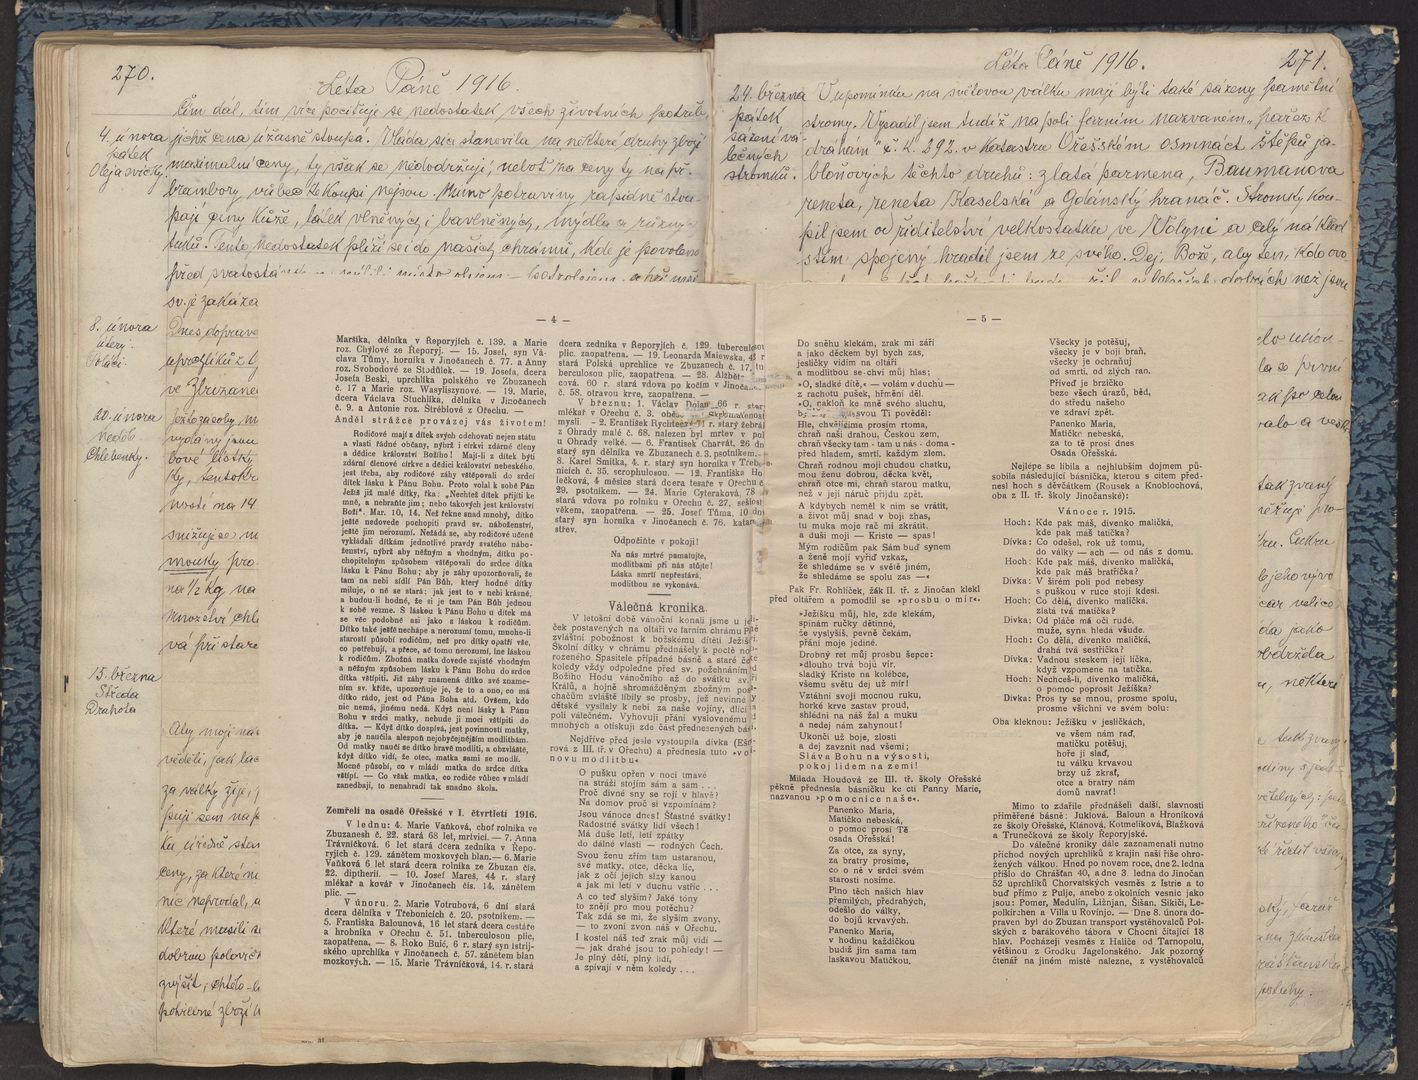 270.
Léta Páně 1916.
Čím dál, tím více pociťuje se nedostatek všech životních potřeb,
4. února
pátek
Olej a svíčky.
jichž cena úžasně stoupá. Vláda sice stanovila na některé druhy zboží
maximalní ceny, ty však se nedodržují, neboť za ceny ty na př.
brambory vůbec k koupi nejsou. Mimo potraviny rapidně stou-
pají ceny kůže, látek vlněných i bavlněných, mýdla a různých
tuků. Tento nedostatek plíží se i do našich chrámů, kde je povoleno
před svatostá
sv. je zakáza
8. února
úterý.
Poláci.
Dnes doprave
uprchlíků z
ve Zbuzane
20. února
neděle
Chlebenky.
Ježto zásoby m
vydány jsou
bové lístky
ky, tentokrá
nosti na 14
snižuje se m
mouky pro
na ½ kg na
množství chle
vá při staré
15. března
Středa
Drahota
Aby moji ná
věděli, jak la
za války žije,
puji sem na
tu úředně sta
ceny, za které n
nic neprodal, a
které musili
dobrou polovičk
zvýšit, chtělo-l
potřebné zboží
271.
Léta Páně 1916.
24. března
pátek
sázení vá
lečných
stromků.
V upomínku na světovou válku mají býti také sázeny památní
stromy. Vysadil jsem tudíž na poli farním nazvaném „pařez k
drahám" č. k. 292. v katastru Ořešském osmnáct štěpů ja-
bloňových těchto druhů: zlatá parmena, Baumanova
reneta, reneta Kaselská a Gdánský hranáč. Stromky kou-
pil jsem od ředitelství velkostatku ve Volyni a celý náklad
s tím spojený hradil jsem ze svého. Dej Bože, aby ten, kdo ovo
— 4 —
Maršíka, dělníka v Řeporyjích č. 139. a Marie
roz. Chýlové ze Řeporyj. — 15. Josef, syn Vá-
clava Tůmy, horníka v Jinočanech č. 77. a Anny
roz. Svobodové ze Stodůlek. — 19. Josefa, dcera
Josefa Beski, uprchlíka polského ve Zbuzanech
č. 17 a Marie roz. Wasyliszynové. — 19. Marie,
dcera Václava Stuchlíka, dělníka v Jinočanech
č. 9. a Antonie roz. Štréblové z Ořechu. —
Anděl strážce provázej vás životem!
Rodičové mají z dítek svých odchovati nejen státu
a vlasti řádné občany, nýbrž i církvi zdárné členy
a dědice království Božího! Mají-li z dítek býti
zdární členové církve a dědici království nebeského,
jest třeba, aby rodičové záhy vštěpovali do srdcí
dítek lásku k Pánu Bohu. Proto volal k sobě Pán
Ježíš již malé dítky, řka: „Nechtež dítek přijíti ke
mně, a nebraňte jim; nebo takových jest království
Boží". Mar. 10, 14. Než řekne snad mnohý, dítko
ještě nedovede pochopiti pravd sv. náboženství,
ještě jim nerozumí. Nežádá se, aby rodičové učeně
vykládali dítkám jednotlivé pravdy svatého nábo-
ženství, nýbrž aby něžným a vhodným, dítku po-
chopitelným způsobem vštěpovali do srdce dítka
lásku k Pánu Bohu; aby je záhy upozorňovali, že
tam na nebi sídlí Pán Bůh, který hodné dítky
miluje, o ně se stará; jak jest to v nebi krásné,
a budou-li hodné, že si je tam Pán Bůh jednou
k sobě vezme. S láskou k Pánu Bohu u dítek má
se věc podobně asi jako s láskou k rodičům.
Dítko také ještě nechápe a nerozumí tomu, mnoho-li
starostí působí rodičům, než pro dítky opatří vše,
co potřebují, a přece, ač tomu nerozumí, lne láskou
k rodičům. Zbožná matka dovede zajisté vhodným
a něžným způsobem lásku k Pánu Bohu do srdce
dítka vštípiti. Již záhy znamená dítko své zname-
ním sv. kříže, upozorňuje je, že to a ono, co má
dítko rádo, jest od Pána Boha atd. Ovšem, kdo
nic nemá, jinému nedá. Když není lásky k Pánu
Bohu v srdci matky, nebude ji moci vštípiti do
dítka. — Když dítko dospívá, jest povinností matky,
aby je naučila alespoň nejobyčejnějším modlitbám.
Od matky naučí se dítko hravě modliti, a obzvláště,
když dítko vidí, že otec, matka sami se modlí.
Mocně působí, co v mládí matka do srdce dítka
vštípí. — Co však matka, co rodiče vůbec v mládí
zanedbají, to nenahradí tak snadno škola.
Zemřeli na osadě Ořešské v I. čtvrtletí 1916.
V lednu: 4. Marie Vaňková, choť rolníka ve
Zbuzanesh č. 22. stará 68 let, mrtvicí. — 7. Anna
Trávníčková. 6 let stará dcera zedníka v Řepo-
ryjích č. 129. zánětem mozkových blan. — 6. Marie
Vaňková 6 let stará dcera rolníka ze Zbuzan čís.
22. diptherií. — 10. Josef Mareš, 44 r. starý
mlékař a kovář v Jinočanech čís. 14. zánětem
plic. —
V únoru. 2. Marie Votrubová, 6 dní stará
dcera dělníka v Třebonicích č. 20. psotníkem. —
5. Františka Balounová, 16 let stará dcera cestáře
a hrobníka v Ořechu č. 51. tuberculosou plic,
zaopatřena. — 8. Roko Buić, 6 r. starý syn istrij-
ského uprchlíka v Jinočanech č. 57. zánětem blan
mozkových. — 15. Marie Trávníčková, 14 r. stará
dcera zedníka v Řeporyjích č. 129. tuberculosou
plic. zaopatřena. — 19. Leonarda Majewska, r
stará Polská uprchlice ve Zbuzanech č. 17. tu
berculosou plic, zaopatřena. — 28. Alžběta
cová. 60 r. stará vdova po kočím v Jinočan
č. 58. otravou krve, zaopatřena. —
V březnu: 1. Václav Dolan 66 r. starý
mlékař v Ořechu č. 3.
mysli. — 2. František Rychtecký r. starý žebrák
z Ořechu malé č. 68. nalezen byl mrtev v pol
u Ohrady velké. — 6. František Charvát, 26 dn
starý syn dělníka ve Zbuzanech č. 3. psotníkem. —
8. Karel Smitka, 4. r. starý syn horníka v Třeb
nicích č. 35. scrophulosou. — 12. Františka Ho
lečková, 4 měsíce stará dcera tesaře v Ořechu č
29. psotníkem. — 24. Marie Cyteraková, 78
stará vdova po rolníku v Ořechu č. 27, sešlost
věkem, zaopatřena. — 25. Josef Tůma, 10 dn
starý syn horníka v Jinočanech č. 76. katar
střev.
Odpočiňte v pokoji!
Na nás mrtvé pamatujte,
modlitbami při nás stůjte!
Láska smrtí nepřestává,
modlitbou se vykonává.
Válečná kronika.
V letošní době vánoční konali jsme u je
ček postavených na oltáři ve farním chrámu Pá
zvláštní pobožnost k božskému dítěti Ježíši
Školní dítky v chrámu přednášely k poctě no
rozeného Spasitele případné básně a staré če
koledy vždy odpoledne před sv. požehnáním
Božího Hodu vánočního až do svátku sv.
Králů, a hojně shromážděným zbožným pos
chačům zvláště líbily se prosby, jež nevinné
dětské vysílaly k nebi za naše vojíny, dlící
poli válečném. Vyhovuji přání vyslovenému
mnohých a otiskuji zde část přednesených bás
Nejdříve před jesle vystoupila dívka (Eš
rová z III. tř. v Ořechu) a přednesla tuto »vo
novu modlitbu«
O pušku opřen v noci tmavé
na stráži stojím sám a sám . . .
Proč divné sny se rojí v hlavě?
Na domov proč si vzpomínám?
Jsou vánoce dnes! Šťastné svátky!
Radostné svátky lidí všech!
Má duše letí, letí zpátky
do dálné vlasti — rodných Čech.
Svou ženu zřím tam ustaranou,
své matky, otce, děcka líc,
jak z očí jejich slzy kanou
a jak mi letí v duchu vstříc . . .
A co teď slyším? Jaké tóny
to znějí pro mou potěchu?
Tak zdá se mi, že slyším zvony,
— to zvoní zvon náš v Ořechu.
I kostel náš teď zrak můj vidí —
— jak drahé jsou to pohledy! —
Je plný dětí, plný lidí,
a zpívají v něm koledy . . .
— 5 —
Do sněhu klekám, zrak mi září
a jako děckem byl bych zas,
jesličky vidím na oltáři
a modlitbou se chví můj hlas;
»O, sladké dítě,« — volám v duchu —
z rachotu pušek, hřmění děl.
»O, nakloň ke mně svého sluchu,
Ti pověděl:
Hle, chvějícíma prosím rtoma,
chraň naši drahou, Českou zem,
chraň všecky tam - tam u nás - doma -
před hladem, smrtí, každým zlem.
Chraň rodnou moji chudou chatku,
mou ženu dobrou, děcka květ,
chraň otce mi, chraň starou matku,
než v její náruč přijdu zpět.
A kdybych neměl k nim se vrátit,
a život můj snad v boji zhas,
tu muka moje rač mi zkrátit,
a duši mojí — Kriste — spas!
Mým rodičům pak Sám buď synem
a ženě mojí vyřiď vzkaz,
že shledáme se v světě jiném,
že shledáme se spolu zas —«
Pak Fr. Rohlíček, žák II. tř. z Jinočan klekl
před oltářem a pomodlil se »prosbu o mír«.
»Ježíšku můj, hle, zde klekám,
spínám ručky dětinné,
že vyslyšíš, pevně čekám,
přání moje jediné.
Drobný ret můj prosbu šepce:
»dlouho trvá boj vír,
sladký Kriste na kolébce,
všemu světu dej už mír!
Vztáhni svojí mocnou ruku,
horké krve zastav proud,
shlédni na náš žal a muku
a nedej nám zahynout!
Ukonči už boje, zlosti
a dej zavznít nad všemi:
Sláva Bohu na výsosti,
pokoj lidem na zemi!
Milada Houdová ze III. tř. školy Ořešské
pěkně přednesla básničku ke cti Panny Marie,
nazvanou »pomocnice naše«.
Panenko Maria,
Matičko nebeská,
o pomoc prosí Tě
osada Ořešská!
Za otce, za syny,
za bratry prosíme,
co o ně v srdci svém
starosti nosíme.
Plno těch našich hlav
přemilých, předrahých,
odešlo do války,
do bojů krvavých.
Panenko Maria,
v hodinu každičkou
budiž jim sama tam
laskavou Matičkou.
Všecky je potěšuj,
všecky je v boji braň,
všecky je ochraňuj
od smrti, od zlých ran.
Přiveď je brzičko
beze všech úrazů, běd,
do středu našeho
ve zdraví zpět.
Panenko Maria,
Matičko nebeská,
za to tě prosí dnes
Osada Ořešská.
Nejlépe se líbila a nejhlubším dojmem pů-
sobila následující básnička, kterou s citem před-
nesl hoch s děvčátkem (Rousek a Knoblochová,
oba z II. tř. školy Jinočanské):
Vánoce r. 1915.
Hoch: Kde pak máš, divenko maličká,
kde pak máš tatíčka?
Dívka: Co odešel, rok už tomu,
do války — ach — od nás z domu.
Hoch: Kde pak máš, divenko maličká,
kde pak máš bratříčka?
Dívka: V širém poli pod nebesy
s puškou v ruce stojí kdesi.
Hoch: Co dělá, divenko maličká,
zlatá tvá matička?
Dívka: Od pláče má oči rudé,
muže, syna hledá všude.
Hoch: Co dělá, divenko maličká,
drahá tvá sestřička?
Dívka: Vadnou steskem její líčka,
když vzpomene na tatíčka.
Hoch: Nechceš-li, divenko maličká,
o pomoc poprosit Ježíška?
Dívka: Pros ty se mnou, prosme spolu,
prosme všichni ve svém bolu:
Oba kleknou: Ježíšku v jesličkách,
ve všem nám rač,
matičku potěšuj,
hoře jí slaď,
tu válku krvavou
brzy už zkrať,
otce a bratry nám
domů navrať!
Mimo to zdařile přednášeli další, slavnosti
přiměřené básně: Juklová. Baloun a Hroníková
ze školy Ořešské, Klánová, Kotmelíková, Blažková
a Trunečková ze školy Řeporyjské.
Do válečné kroniky dále zaznamenati nutno
příchod nových uprchlíků z krajin naší říše ohro-
žených válkou. Hned po novém roce, dne 2. ledna
přišlo do Chrášťan 40, a dne 3. ledna do Jinočan
52 uprchlíků Chorvatských vesměs z Istrie a to
buď přímo z Pulje, anebo z okolních vesnic jako
jsou: Pomer, Medulín, Ližnjan, Šišan, Sikiči, Le-
polkirchen a Villa u Rovinjo. — Dne 8. února do-
praven byl do Zbuzan transport vystěhovalců Pol-
ských z barákového tábora v Chocni čítající 18
hlav. Pocházejí vesměs z Haliče od Tarnopolu,
většinou z Grodku Jagelonského. Jak pozorný
čtenář na jiném místě nalezne, z vystěhovalců